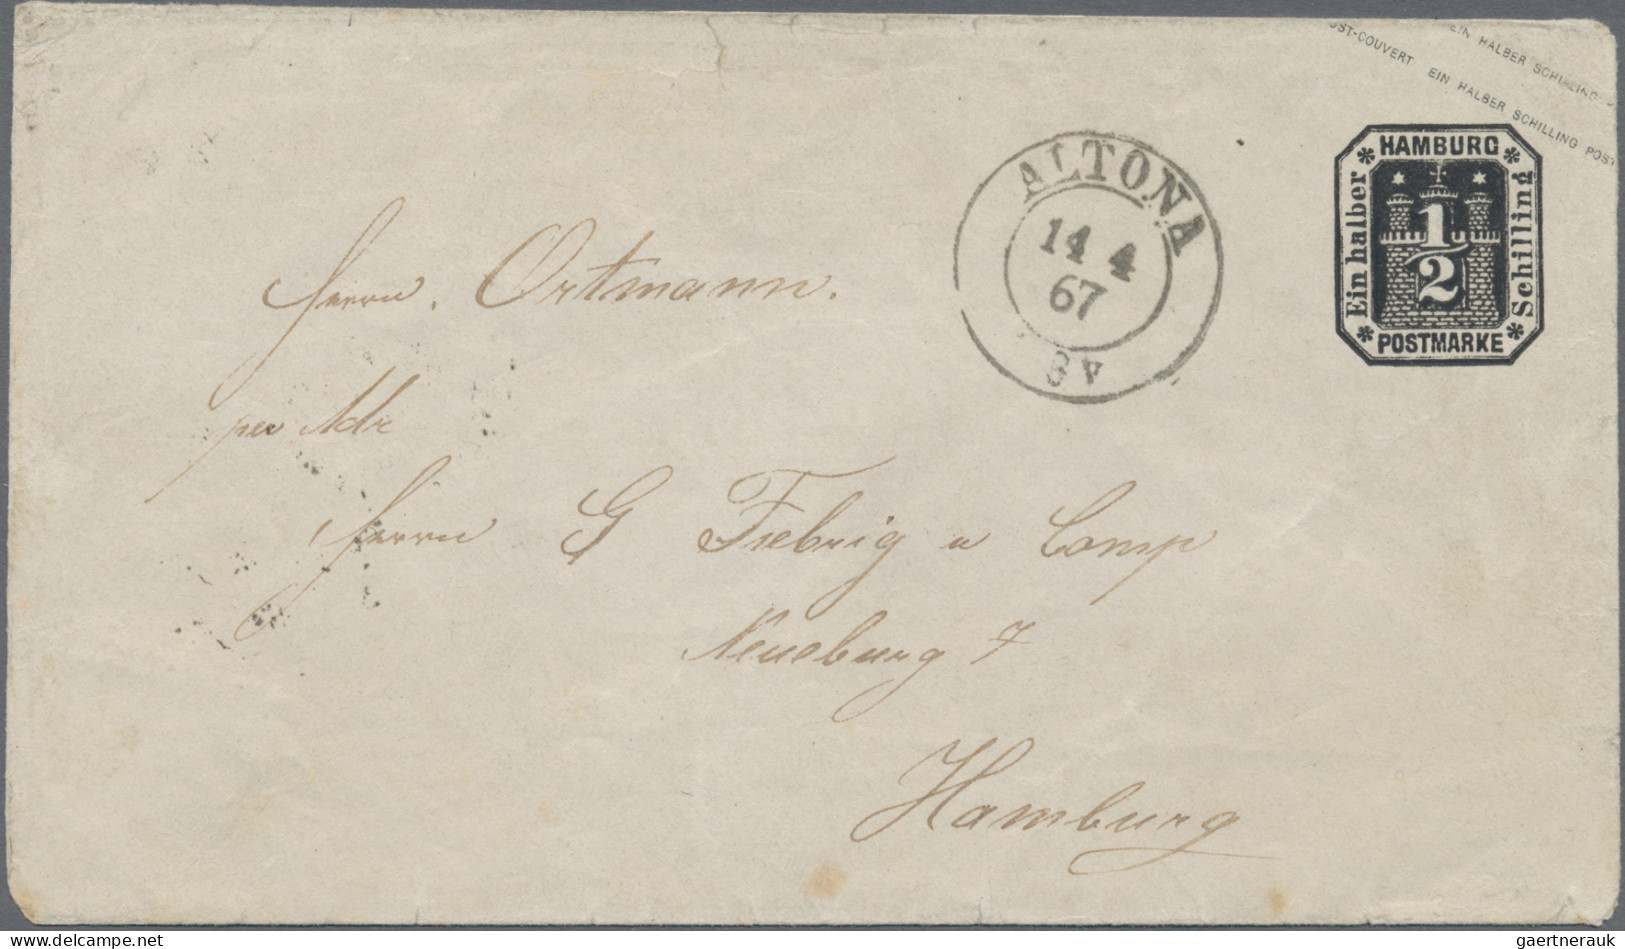 EIN HALBER SCHILLING
OST-COUVERT EIN HALBER SCHILLING POST
HAMBURG
Ein halber
1/2
Schilling
POSTMARKE
ALTONA
14 4
67
8 V
Herrn. Ortmann.
per Adr
Herrn G Fiebrig u Comp
Neueburg 7
Hamburg
www.delcampe.net
gaertnerauk